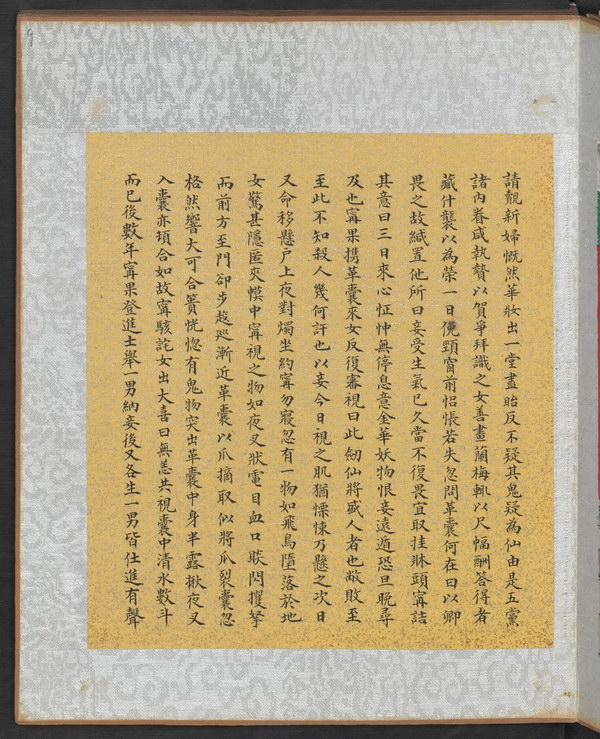 9
請覿新婦慨然華妝出一堂盡眙反不疑其鬼疑為仙由是五黨
諸內眷咸執贄以賀爭拜識之女善畫蘭梅輒以尺幅酬答得者
藏什襲以為榮一日俛頸窗前怊悵若失忽問革囊何在曰以卿
畏之故緘置他所曰妾受生氣已久當不復畏宜取挂牀頭甯詰
其意曰三日來心怔忡無停息意金華妖物恨妾遠遁恐旦晚尋
及也甯果携革囊來女反復審視曰此劒仙將盛人者也敝敗至
至此不知殺人幾何許也以妾今日視之肌猶慄悚乃懸之次日
又命移懸戶上夜對燭坐約甯勿寢忽有一物如飛鳥墮落於地
女驚甚隱匿夾幙中甯視之物如夜叉狀電目血口睒閃攫拏
而前方至門卻步逡巡漸近革囊以爪摘取似將爪裂囊忽
格然響大可合簣恍惚有鬼物突出革囊中身半露揪夜叉
入囊亦頃合如故甯駭詫女出大喜曰無恙共視囊中清水數斗
而已後數年甯果登進士舉一男納妾後又各生一男皆仕進有聲